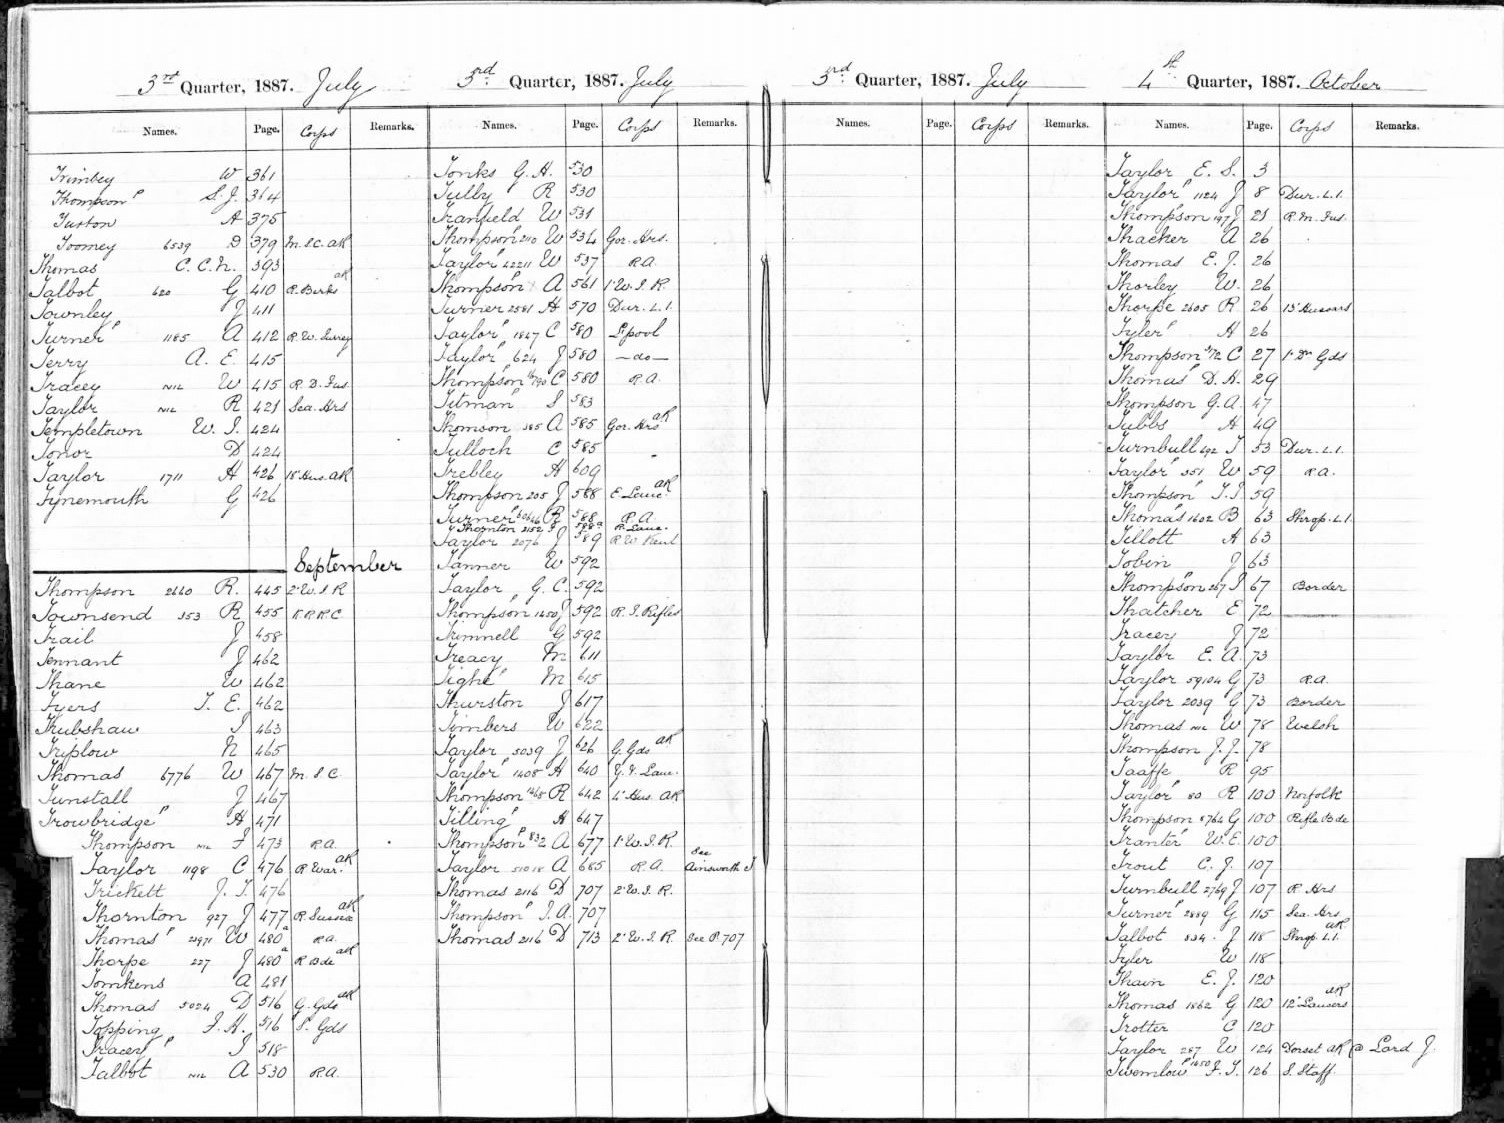 3rd Quarter, 1887. July
Names. Page. Corps Remarks.
Trimbey W 361
Thompson " S. J. 364
Tuston A 375
Toomey 6539 D 379 M.S.C. AK
Thomas C. C. N. 393
Talbot 620 G 410 R. Berks AK
Townley J 411
Turner " 1185 A 412 R. W. Surrey
Terry A. E. 415
Tracey NIL W 415 R. D. Fus.
Taylor NIL R 421 Sea. Hrs
Templetown W. J. 424
Tonor D 424
Taylor 1711 H 426 18 Hus. AK
Tynemouth G 426
September
Thompson 2640 R. 445 2" W. I. R
Townsend 353 R 455 K.R.R.C
Trail J 458
Tennant J 462
Thane W 462
Tyers T. E. 462
Thubshaw J 463
Triplow N 465
Thomas 6776 W 467 M. S. C.
Tunstall J 467
Trowbridge " H 471
Thompson NIL F 473 R.A.
Taylor 1198 C 476 R War. AK
Trickett J. T. 476
Thornton 927 J 477 R. Sussex AK
Thomas " 23971 W 480a R.A.
Thorpe 227 J 480a R Bde AK
Tomkens A 481
Thomas 5024 D 516 G. Gds AK
Topping F. H. 516 S. Gds
Tracey " J 518
Talbot NIL A 530 R.A.
3rd Quarter, 1887. July
Names. Page. Corps Remarks.
Tonks G. H. 530
Tulby R 530
Tranfield W 531
Thompson " 2110 W 534 Gor. Hrs.
Taylor " 42211 W 537 R.A.
Thompson A 561 1" W. I. R
Turner 2581 H 570 Dur. L.I.
Taylor " 1847 C 580 L'pool
Taylor " 624 J 580 —do—
Thompson " C 580 R.A.
Titman " S 583
Thomson 385 A 585 Gor. Hrs AK
Tulloch C 585
Trebley H 609
Thompson 205 J 588 E. Lanc. AK
Turner " R 588 R.A.
Thornton 2152 J 588a R. Lanc.
Taylor 2076 J 589 R W Kent
Tanner W 592
Taylor G. C. 592
Thompson " 1450 J 592 R. I. Rifles
Trimnell G 592
Treacy M 611
Tighe " M 615
Thurston J 617
Timbers W 622
Taylor 5039 J 626 G. Gds AK
Taylor " 1408 H 640 Y. & Lanc.
Thompson 1468 R 642 4" Hus. AK
Tilling " H 647
Thompson " 832 A 677 1" W. I. R.
Taylor 51018 A 685 R.A. See Ainsworth J
Thomas 2116 D 707 2" W. I. R.
Thompson " J. A. 707
Thomas 2116 D 713 2" W. I. R. See P. 707
3rd Quarter, 1887. July
Names. Page. Corps Remarks.
4th Quarter, 1887. October
Names. Page. Corps Remarks.
Taylor E. S. 3
Taylor " 1124 J 8 Dur. L.I.
Thompson 197 J 21 R. M. Fus.
Thacker A 26
Thomas E. J. 26
Thorley W. 26
Thorpe 2605 R 26 13" Hussars
Tyler " H 26
Thompson C 27 1" Dn Gds
Thomas " D. H. 29
Thompson G. A. 47
Tubbs H 49
Turnbull 692 T 53 Dur. L.I.
Taylor " 351 W 59 R.A.
Thompson " T. J. 59
Thomas " 1602 B 63 Shrop. L.I.
Tillott H 63
Tobin J 63
Thompson 267 J 67 Border
Thatcher E 72
Tracey J 72
Taylor E. A. 73
Taylor 59104 G 73 R.A.
Taylor 2039 G 73 Border
Thomas NIL W 78 Welsh
Thompson J. J. 78
Taaffe R 95
Taylor " 80 R 100 Norfolk
Thompson 8764 G 100 Rifle Bde
Tranter " W. E. 100
Trout C. J. 107
Turnbull 2769 J 107 R Hrs
Turner " 2889 G 115 Sea. Hrs
Talbot 834 J 118 Shrop. L.I. AK
Tyler W 118
Thain E. J. 120
Thomas 1862 G 120 12" Lancers AK
Trotter C 120
Taylor 287 W 124 Dorset AK @ Lord J.
Twemlow " 1450 F. T. 126 S. Staff.